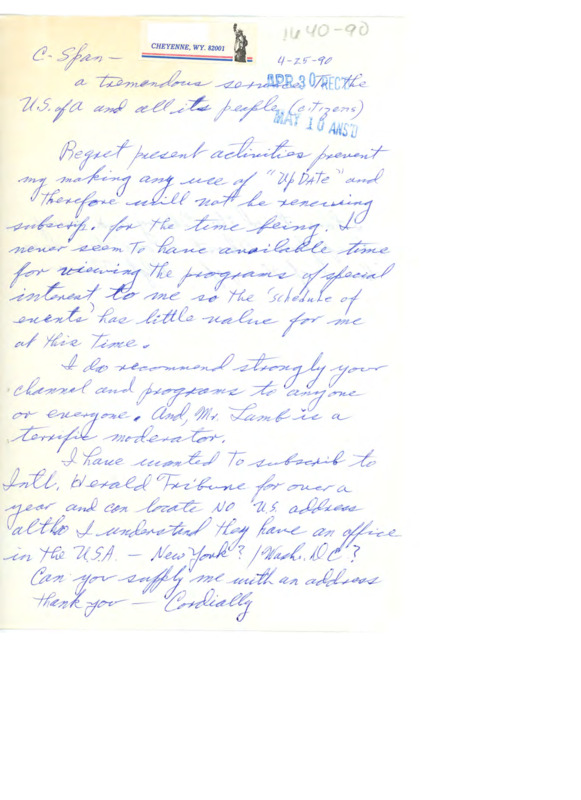 1640-90
CHEYENNE, WY. 82001
C-Span — 4-25-90
APR 30 REC'D
a tremendous service to the
U.S. of A and all its people (citizens)
MAY 10 ANS'D
Regret present activities prevent
my making any use of "UpDate" and
therefore will not be renewing
subscrip. for the time being. I
never seem to have available time
for viewing the programs of special
interest to me so the 'schedule of
events' has little value for me
at this time.
I do recommend strongly your
channel and programs to anyone
or everyone. And, Mr. Lamb is a
terrific moderator.
I have wanted to subscrib to
Intl. Herald Tribune for over a
year and can locate no U.S. address
altho I understand they have an office
in the U.S.A. — New York? / Wash. D C?
Can you supply me with an address
thank you — Cordially